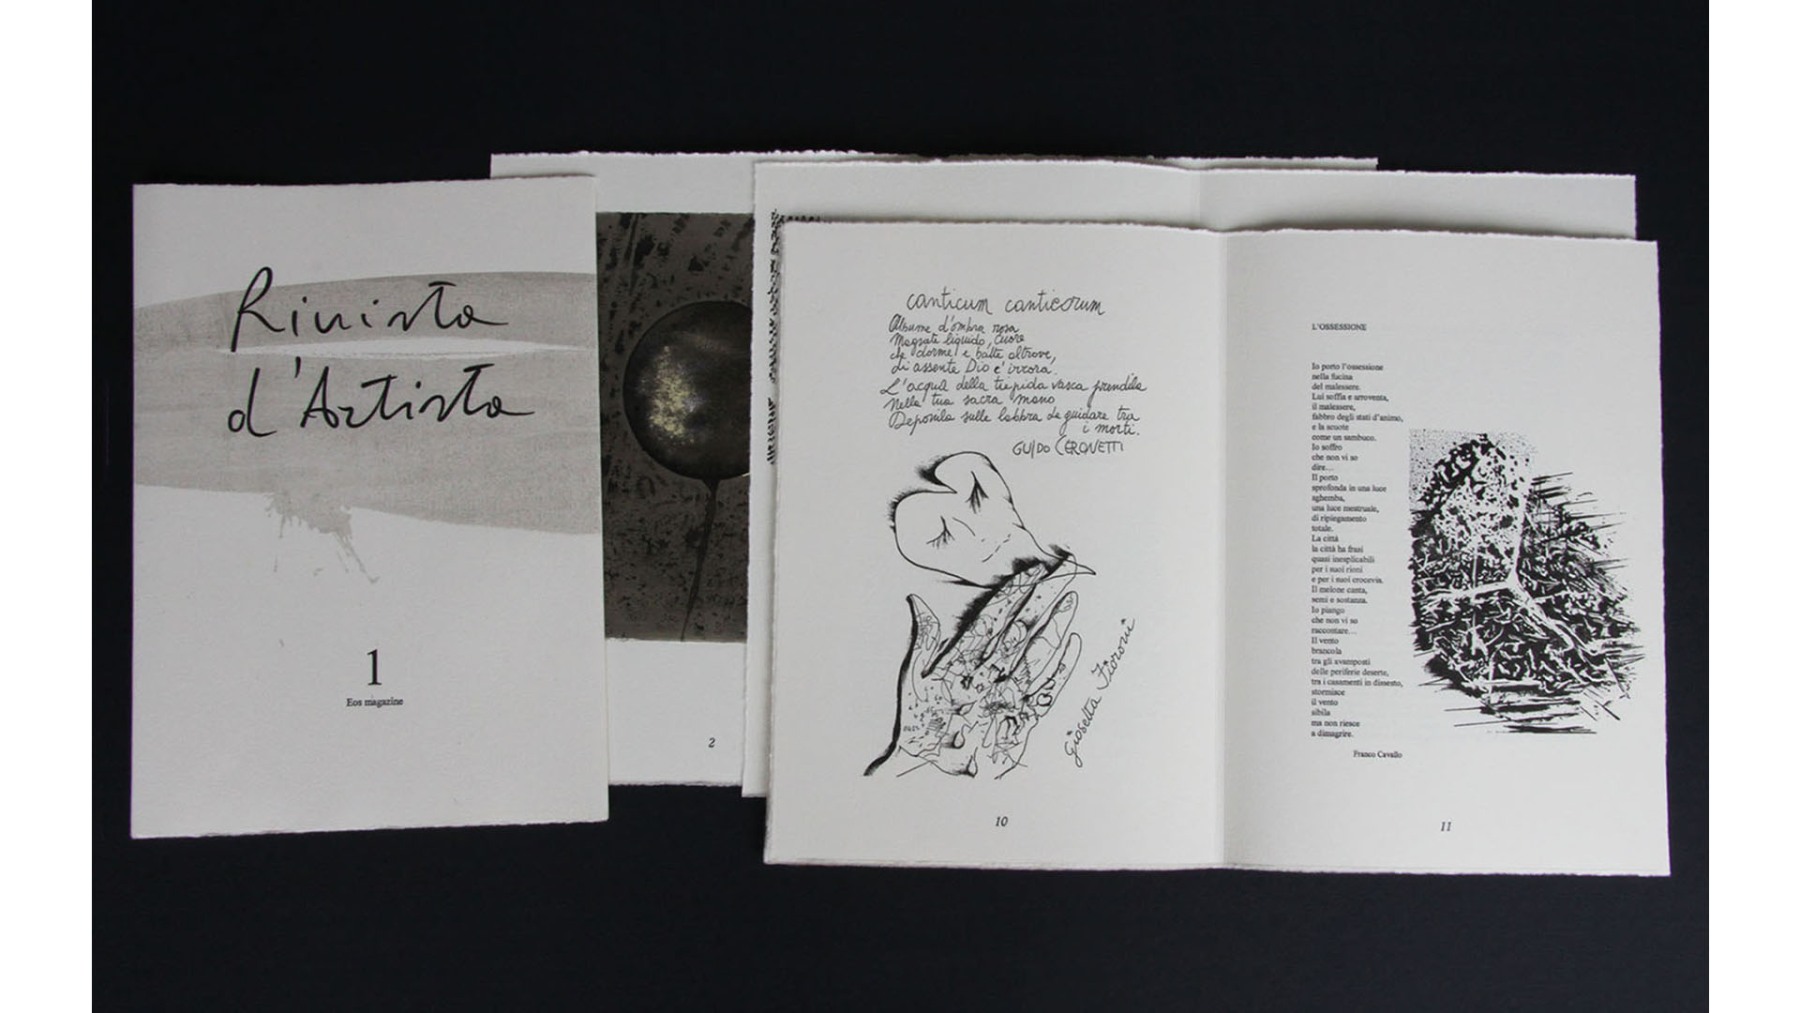 Rivista
d'Artista
1
Eos magazine
2
canticum canticorum
Albume d'ombra rosa
Magnate liquido, cuore
che dorme e batte altrove,
di assente Dio
L'acqua della tiepida vasca prendila
Nella tua sacra mano
Deponila sulle labbra da guidare tra
i morti.
GUIDO CERONETTI
Giosetta Fioroni
10
L'OSSESSIONE
Io porto l'ossessione
nella fucina
del malessere.
Lui soffia e arroventa,
il malessere,
fabbro degli stati d'animo,
e la scuote
come un sambuco.
Io soffro
che non vi so
dire...
Il porto
sprofonda in una luce
sghemba,
una luce mestruale,
di ripiegamento
totale.
La città
la città ha frasi
quasi inesplicabili
per i suoi rioni
e per i suoi crocevia.
Il melone canta,
semi e sostanza.
Io piango
che non vi so
raccontare...
Il vento
brancola
tra gli avamposti
delle periferie deserte,
tra i casamenti in dissesto,
stormisce
il vento
sibila
ma non riesce
a dimagrire.
Franco Cavallo
11